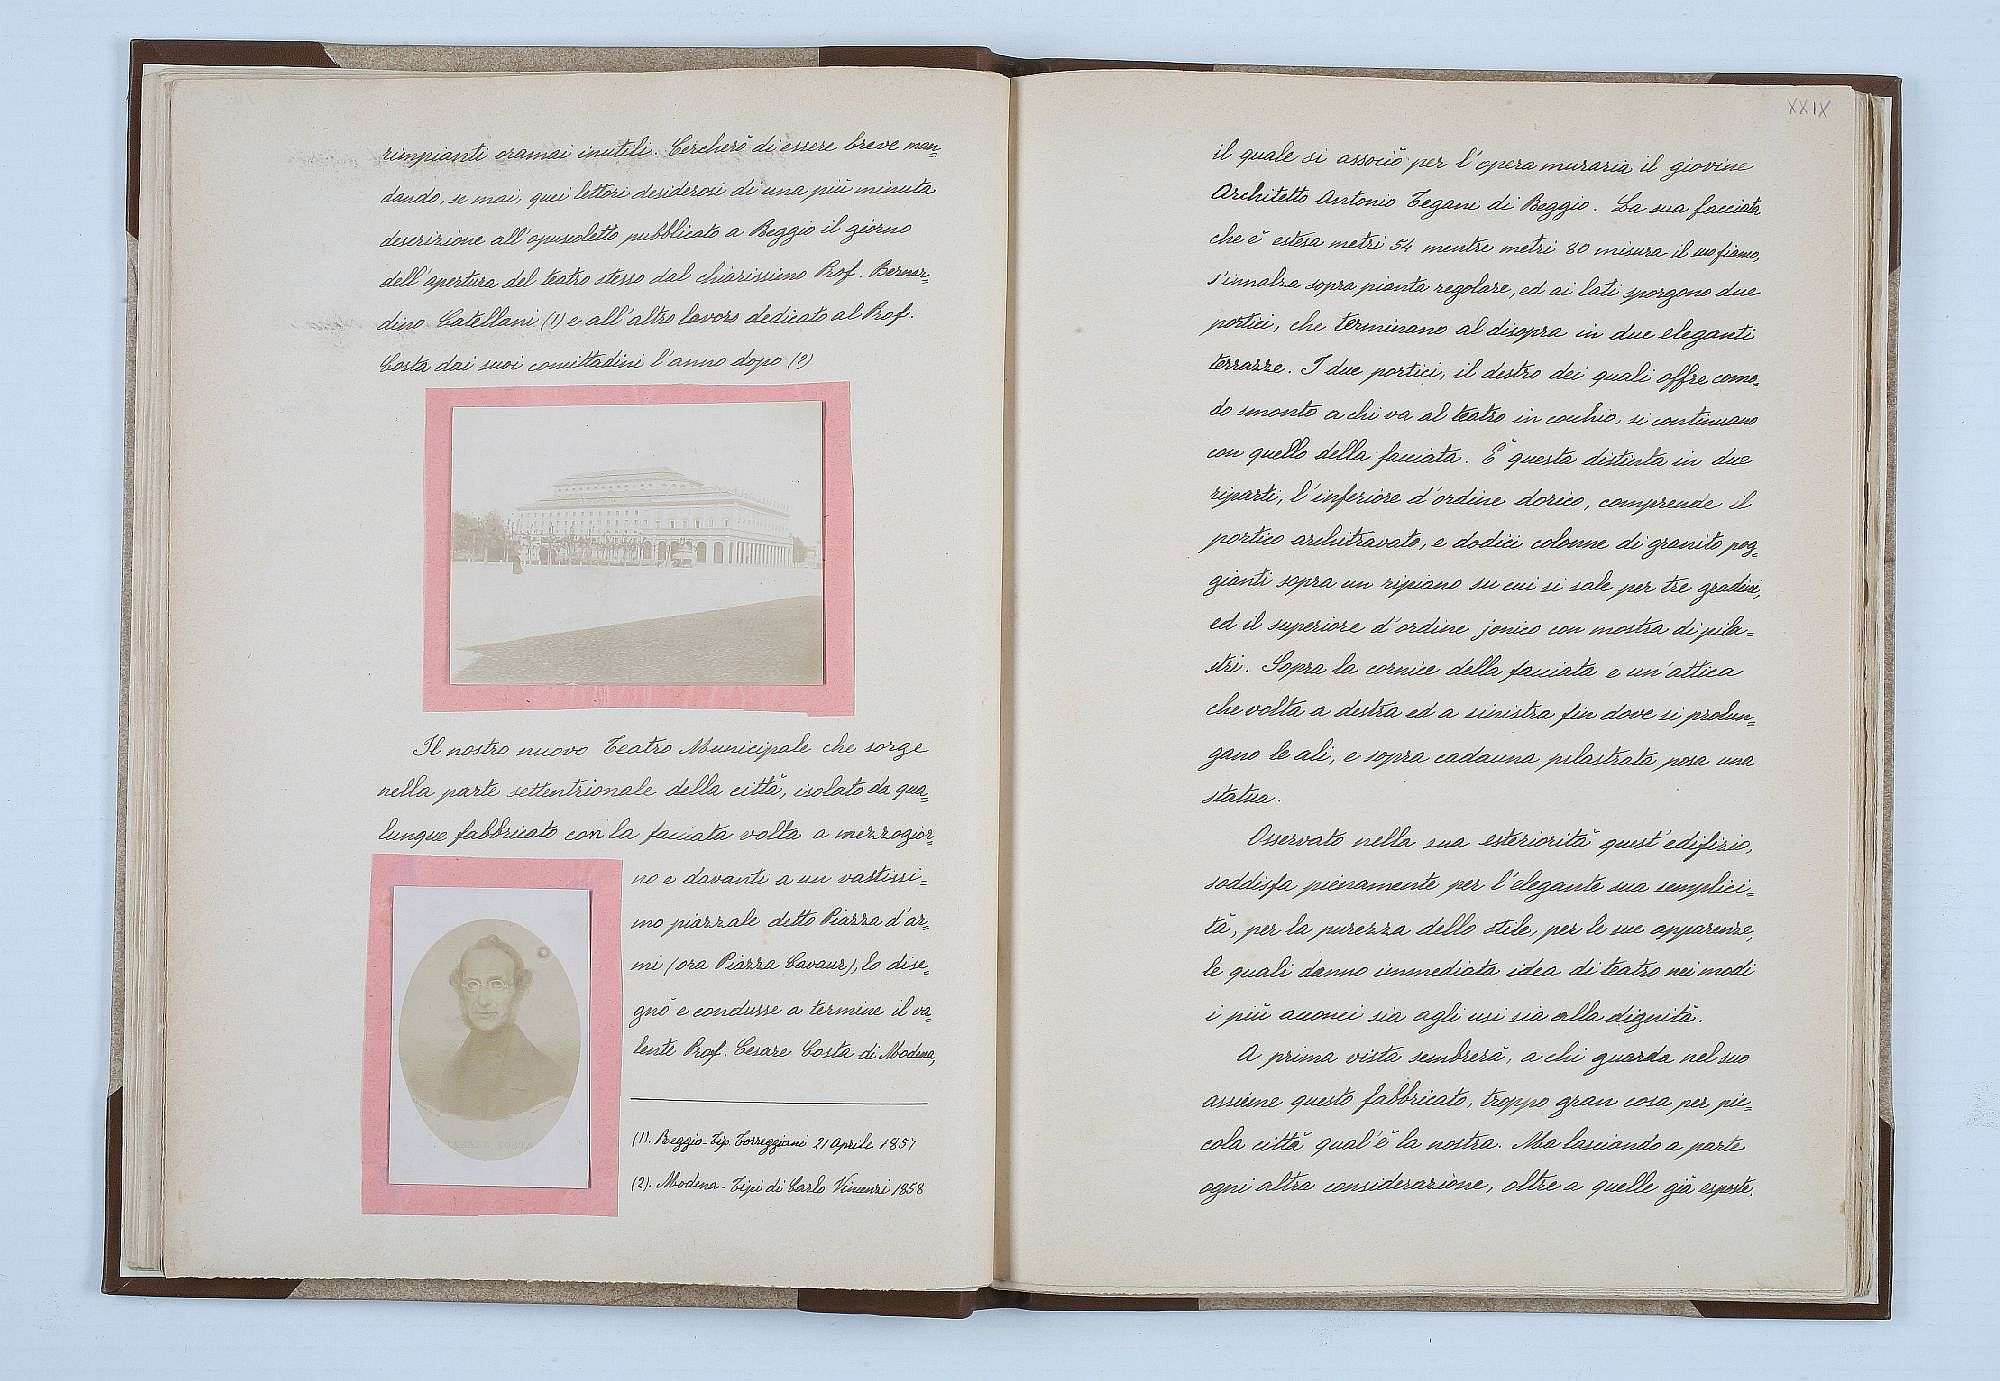 rimpianti oramai inutili. Cercherò di essere breve man=
dando, se mai, quei lettori desiderosi di una più minuta
descrizione all'opuscoletto pubblicato a Reggio il giorno
dell'apertura del teatro stesso dal chiarissimo Prof. Bernar=
dino Catellani (1) e all'altro lavoro dedicato al Prof.
Costa dai suoi concittadini l'anno dopo (2)
Il nostro nuovo Teatro Municipale che sorge
nella parte settentrionale della città, isolato da qua=
lunque fabbricato con la facciata volta a mezzogior=
no e davanti a un vastissi=
mo piazzale detto Piazza d'ar=
mi (ora Piazza Cavour), lo dise=
gnò e condusse a termine il va=
lente Prof. Cesare Costa di Modena,
(1). Reggio-Tip. Torreggiani 21 Aprile 1857
(2). Modena - Tipi di Carlo Vincenzi 1858
XXIX
il quale si associò per l'opera muraria il giovine
Architetto Antonio Tegani di Reggio. La sua facciata
che è estesa metri 54 mentre metri 80 misura il suo fianco,
s'innalza sopra pianta regolare, ed ai lati sporgono due
portici, che terminano al disopra in due eleganti
terrazze. I due portici, il destro dei quali offre como=
do smonto a chi va al teatro in cocchio, si continuano
con quello della facciata. È questa distinta in due
riparti, l'inferiore d'ordine dorico, comprende il
portico architravato, e dodici colonne di granito pog=
gianti sopra un ripiano su cui si sale per tre gradini,
ed il superiore d'ordine jonico con mostra di pila=
stri. Sopra la cornice della facciata e un'attica
che volta a destra ed a sinistra fin dove si prolun=
gano le ali, e sopra cadauna pilastrata posa una
statua.
Osservato nella sua esteriorità quest'edifizio,
soddisfa pienamente per l'elegante sua semplici=
tà, per la purezza dello stile, per le sue apparenze,
le quali danno immediata idea di teatro nei modi
i più acconci sia agli usi sia alla dignità.
A prima vista sembrerà, a chi guarda nel suo
assieme questo fabbricato, troppo gran cosa per pic=
cola città qual'è la nostra. Ma lasciando a parte
ogni altra considerazione, oltre a quelle già esposte,